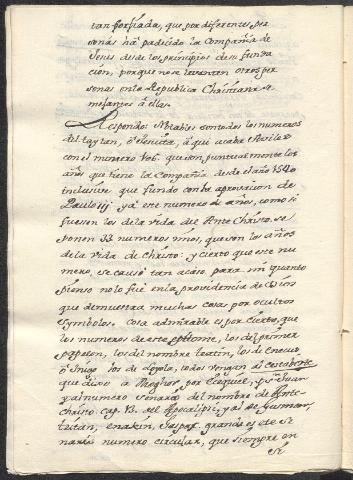 tan porfiada, que por diferentes per
sonas hà padecido la Compañia de
Jesus desde los principios de su funda
cion, porque no se levanten otros per
sonas en la Republica Christiana se
mejantes à ellas.
Respondo: Notables son todos los numeros
del caytan, ò Jesuita, à que acaba
con el numero 106. que son puntualmente los
años que tiene la Compañia desde el año 1540
inclusive que fundo con la aprovacion de
Paulo iij. ya este numero de años, como si
fuessen los de la vida del Ante Christo, se
ponen 33 numeros unos, que son los años
de la vida de Christo: y cierto que este nu
mero, se causò tan acaso para mi quanto
pienso no lo fue en la providencia de Dios
que demuestra muchas cosas por ocultos
symbolos. Cosa admirable es por cierto, que
los numeros de este los del primer
papelon, los del nombre teatin, los de Eneco,
ò Inigo los de Loyola, todos vengan al
que dixo à por Ezequiel, p.r Sn Juan
y al numero Senario del nombre de Ante
christo cap. 13. del Apocalipsi, y al de Gusman,
tutan, enakin, Gaspar. grande es este Se
nario numero circular, que siempre en